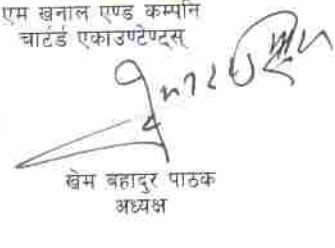 एम खनाल एण्ड कम्पनि
चार्टर्ड एकाउण्टेण्ट्स्
खेम बहादुर पाठक
अध्यक्ष